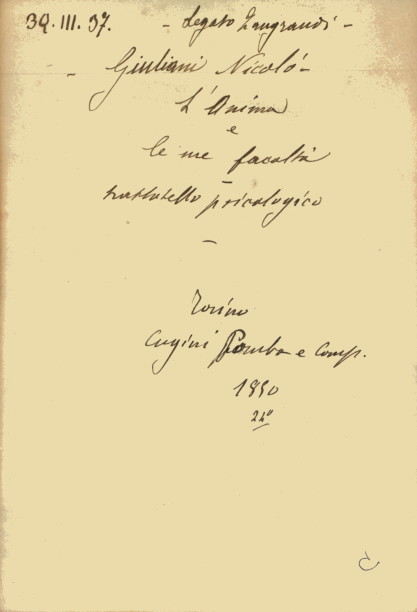 39. III. 37. - Legato Zangrandi -
- Giuliani Nicoló -
L'Anima
e
le sue facoltà
-
trattatello psicologico
-
Torino
Cugini Pomba e Comp.
1850
24°